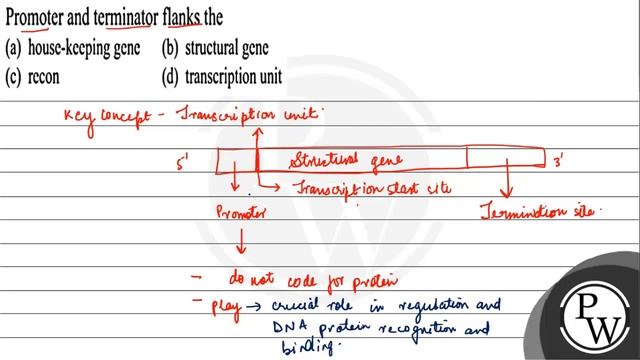 Promoter and terminator flanks the
(a) house-keeping gene (b) structural gene
(c) recon (d) transcription unit
Key concept - Transcription unit.
5' Structural gene 3'
Transcription start cite
Promoter Termination site.
- do not code for protein
- play → crucial role in regulation and
DNA protein recognition and
binding.
PW